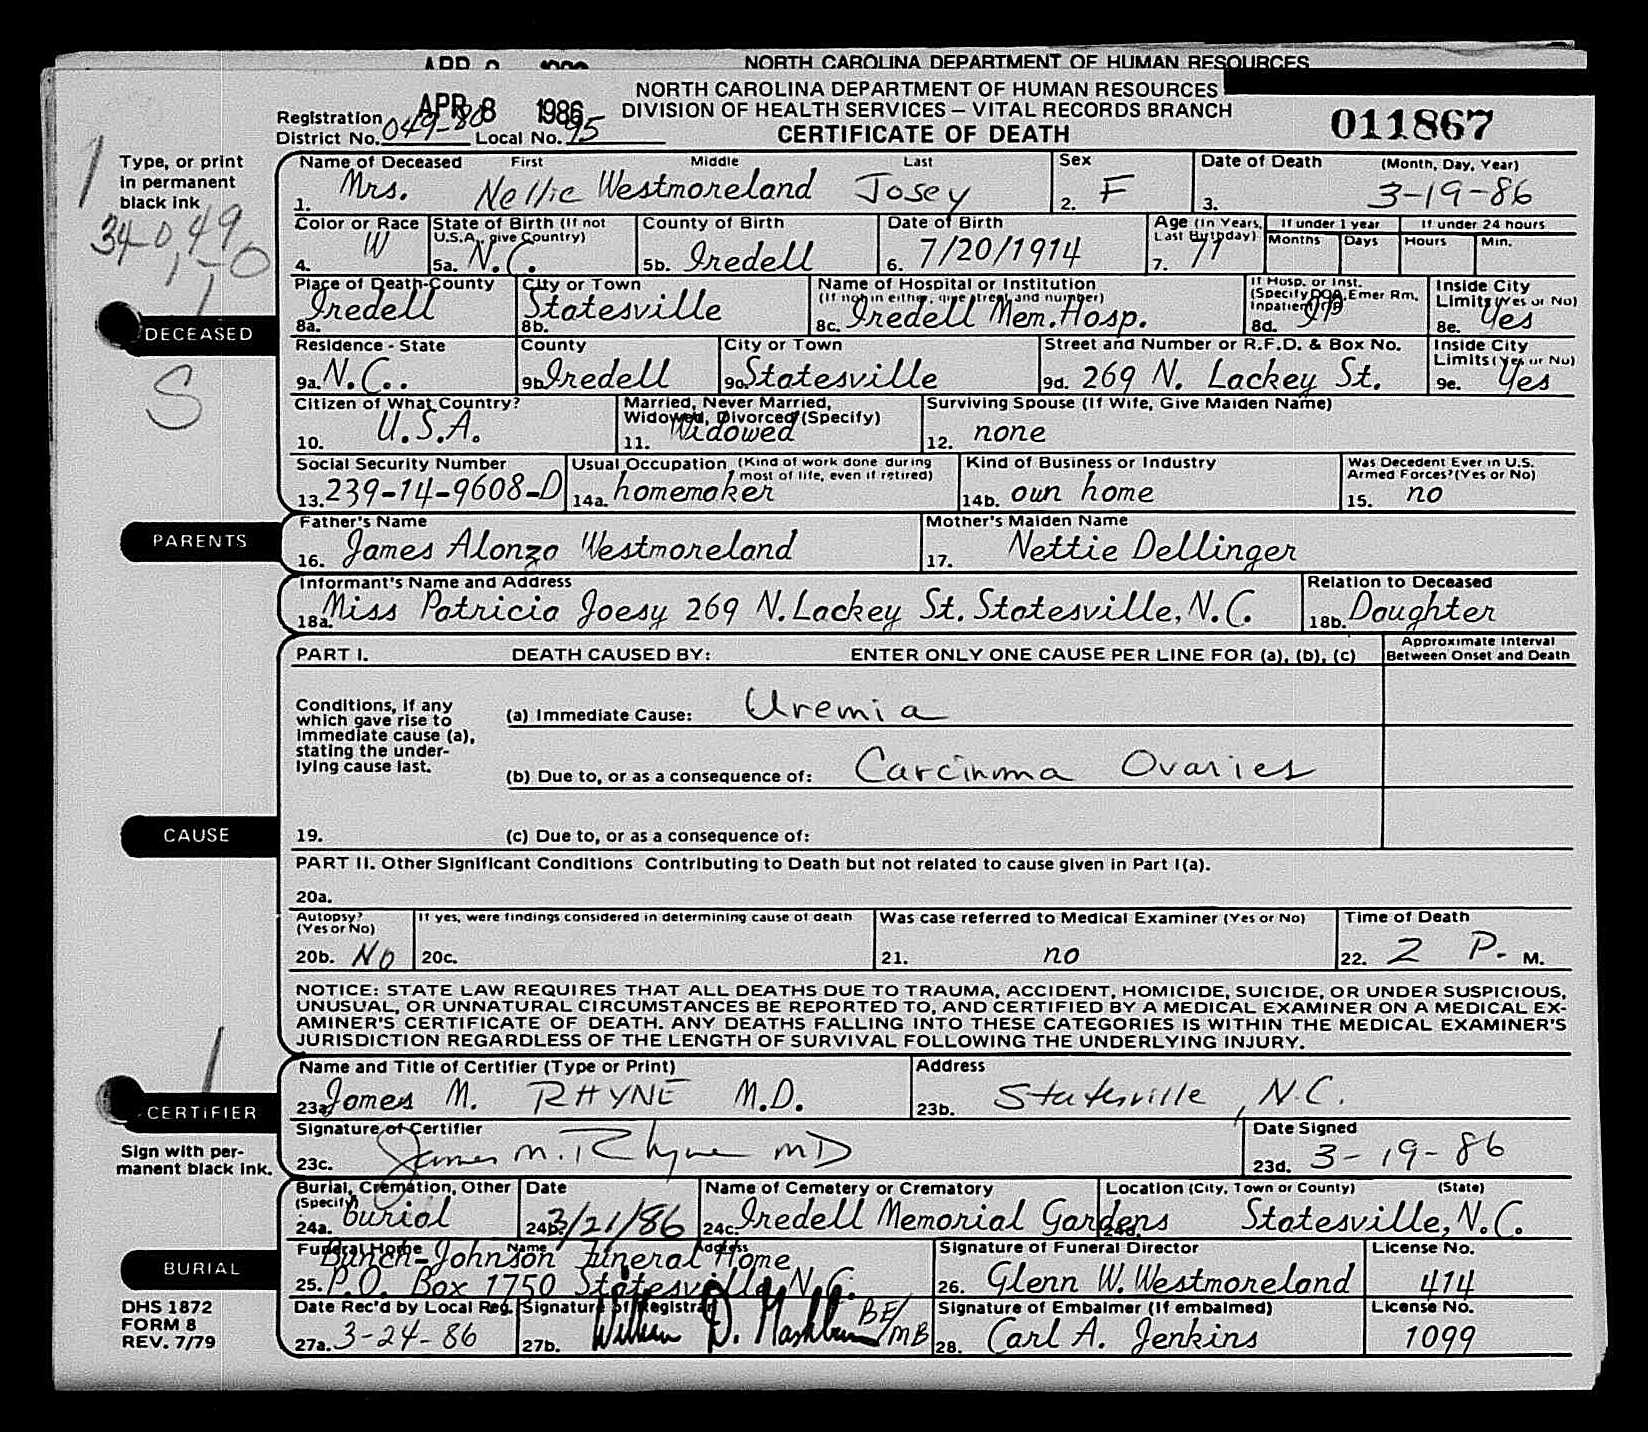 APR 8 1986
NORTH CAROLINA DEPARTMENT OF HUMAN RESOURCES
NORTH CAROLINA DEPARTMENT OF HUMAN RESOURCES
DIVISION OF HEALTH SERVICES – VITAL RECORDS BRANCH
CERTIFICATE OF DEATH
011867
Registration District No. 049-80 Local No. 95
Type, or print in permanent black ink
1
34-0,49
1-0
1
DECEASED
S
Name of Deceased First Middle Last
1. Mrs. Nellie Westmoreland Josey
Sex
2. F
Date of Death (Month, Day, Year)
3. 3-19-86
Color or Race
4. W
State of Birth (If not U.S.A., give Country)
5a. N.C.
County of Birth
5b. Iredell
Date of Birth
6. 7/20/1914
Age (In Years, Last Birthday)
7. 71
If under 1 year
Months Days
If under 24 hours
Hours Min.
Place of Death-County
8a. Iredell
City or Town
8b. Statesville
Name of Hospital or Institution
(If not in either, give street and number)
8c. Iredell Mem. Hosp.
If Hosp. or Inst. (Specify DOA, Emer Rm, Inpatient)
8d.
Inside City Limits (Yes or No)
8e. Yes
Residence - State
9a. N.C..
County
9b. Iredell
City or Town
9c. Statesville
Street and Number or R.F.D. & Box No.
9d. 269 N. Lackey St.
Inside City Limits (Yes or No)
9e. Yes
Citizen of What Country?
10. U.S.A.
Married, Never Married, Widowed, Divorced (Specify)
11. Widowed
Surviving Spouse (If Wife, Give Maiden Name)
12. none
Social Security Number
13. 239-14-9608-D
Usual Occupation (Kind of work done during most of life, even if retired)
14a. homemaker
Kind of Business or Industry
14b. own home
Was Decedent Ever in U.S. Armed Forces? (Yes or No)
15. no
PARENTS
Father's Name
16. James Alonzo Westmoreland
Mother's Maiden Name
17. Nettie Dellinger
Informant's Name and Address
18a. Miss Patricia Joesy 269 N. Lackey St. Statesville, N.C.
Relation to Deceased
18b. Daughter
PART I. DEATH CAUSED BY: ENTER ONLY ONE CAUSE PER LINE FOR (a), (b), (c)
Approximate Interval Between Onset and Death
Conditions, if any which gave rise to immediate cause (a), stating the underlying cause last.
(a) Immediate Cause: Uremia
(b) Due to, or as a consequence of: Carcinoma Ovaries
CAUSE
19. (c) Due to, or as a consequence of:
PART II. Other Significant Conditions Contributing to Death but not related to cause given in Part I(a).
20a.
Autopsy? (Yes or No)
20b. No
If yes, were findings considered in determining cause of death
20c.
Was case referred to Medical Examiner (Yes or No)
21. no
Time of Death
22. 2 P. M.
NOTICE: STATE LAW REQUIRES THAT ALL DEATHS DUE TO TRAUMA, ACCIDENT, HOMICIDE, SUICIDE, OR UNDER SUSPICIOUS,
UNUSUAL, OR UNNATURAL CIRCUMSTANCES BE REPORTED TO, AND CERTIFIED BY A MEDICAL EXAMINER ON A MEDICAL EX-
AMINER'S CERTIFICATE OF DEATH. ANY DEATHS FALLING INTO THESE CATEGORIES IS WITHIN THE MEDICAL EXAMINER'S
JURISDICTION REGARDLESS OF THE LENGTH OF SURVIVAL FOLLOWING THE UNDERLYING INJURY.
1
CERTIFIER
Sign with permanent black ink.
Name and Title of Certifier (Type or Print)
23a. James M. RHYNE M.D.
Address
23b. Statesville, N.C.
Signature of Certifier
23c. James M. Rhyne MD
Date Signed
23d. 3-19-86
Burial, Cremation, Other (Specify)
24a. burial
Date
24b. 3/21/86
Name of Cemetery or Crematory
24c. Iredell Memorial Gardens
Location (City, Town or County) (State)
24d. Statesville, N.C.
BURIAL
Funeral Home Name Address
25. Bunch-Johnson Funeral Home
P.O. Box 1750 Statesville, N.C.
Signature of Funeral Director
26. Glenn W. Westmoreland
License No.
414
DHS 1872
FORM 8
REV. 7/79
Date Rec'd by Local Reg.
27a. 3-24-86
Signature of Registrar
27b. William D. BF/MB
Signature of Embalmer (If embalmed)
28. Carl A. Jenkins
License No.
1099